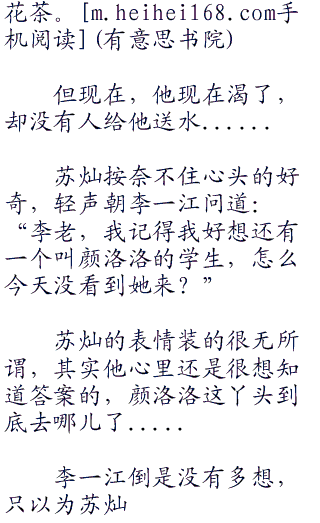 花茶。[m.heihei168.com手
机阅读](有意思书院)
但现在，他现在渴了，
却没有人给他送水......
苏灿按奈不住心头的好
奇，轻声朝李一江问道：
“李老，我记得我好想还有
一个叫颜洛洛的学生，怎么
今天没看到她来？”
苏灿的表情装的很无所
谓，其实他心里还是很想知
道答案的，颜洛洛这丫头到
底去哪儿了.....
李一江倒是没有多想，
只以为苏灿